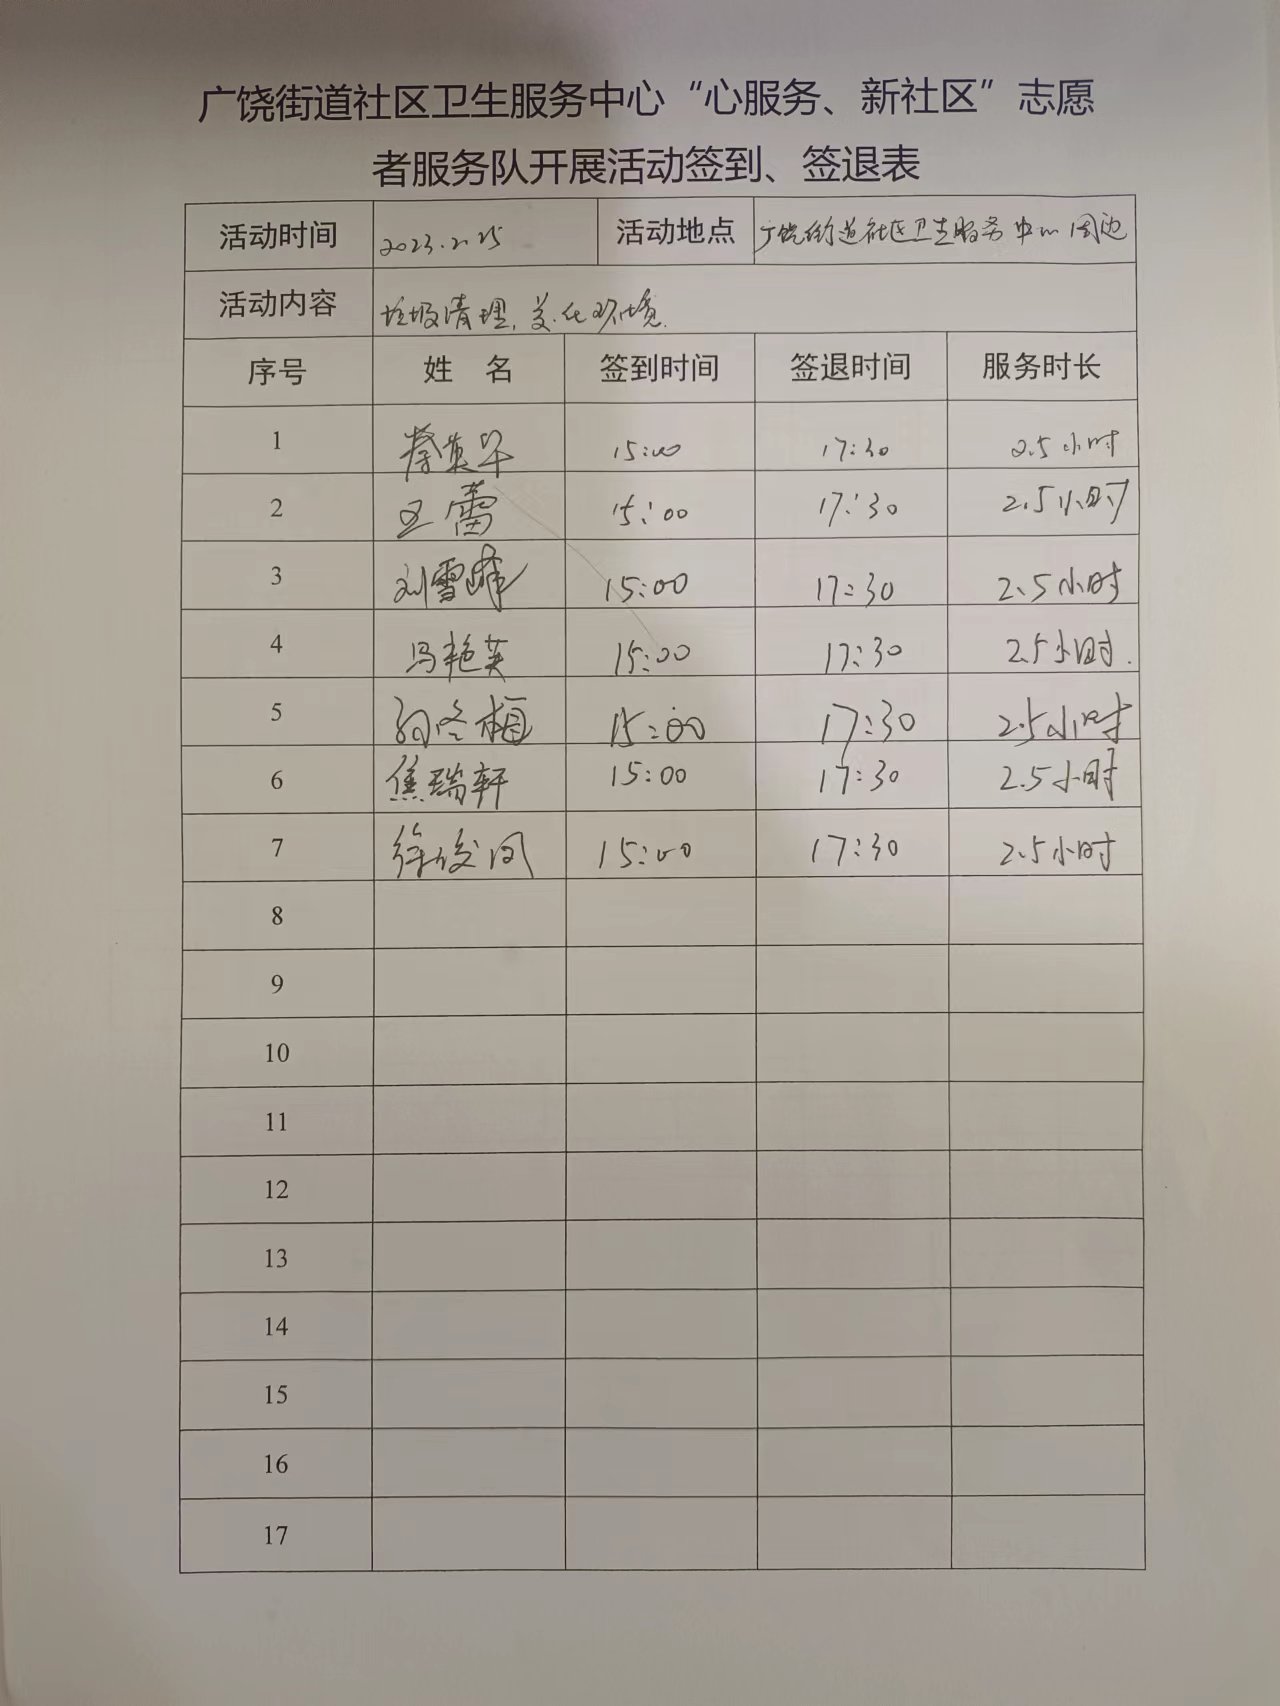 广饶街道社区卫生服务中心“心服务、新社区”志愿
者服务队开展活动签到、签退表
活动时间 2023.2.25 活动地点 广饶街道社区卫生服务中心周边
活动内容 垃圾清理,美化环境.
序号 姓 名 签到时间 签退时间 服务时长
1 15:00 17:30 2.5小时
2 王蕾 15:00 17:30 2.5小时
3 刘雪峰 15:00 17:30 2.5小时
4 马艳英 15:00 17:30 2.5小时.
5 15:00 17:30 2.5小时
6 焦瑞轩 15:00 17:30 2.5小时
7 徐俊凤 15:00 17:30 2.5小时
8
9
10
11
12
13
14
15
16
17